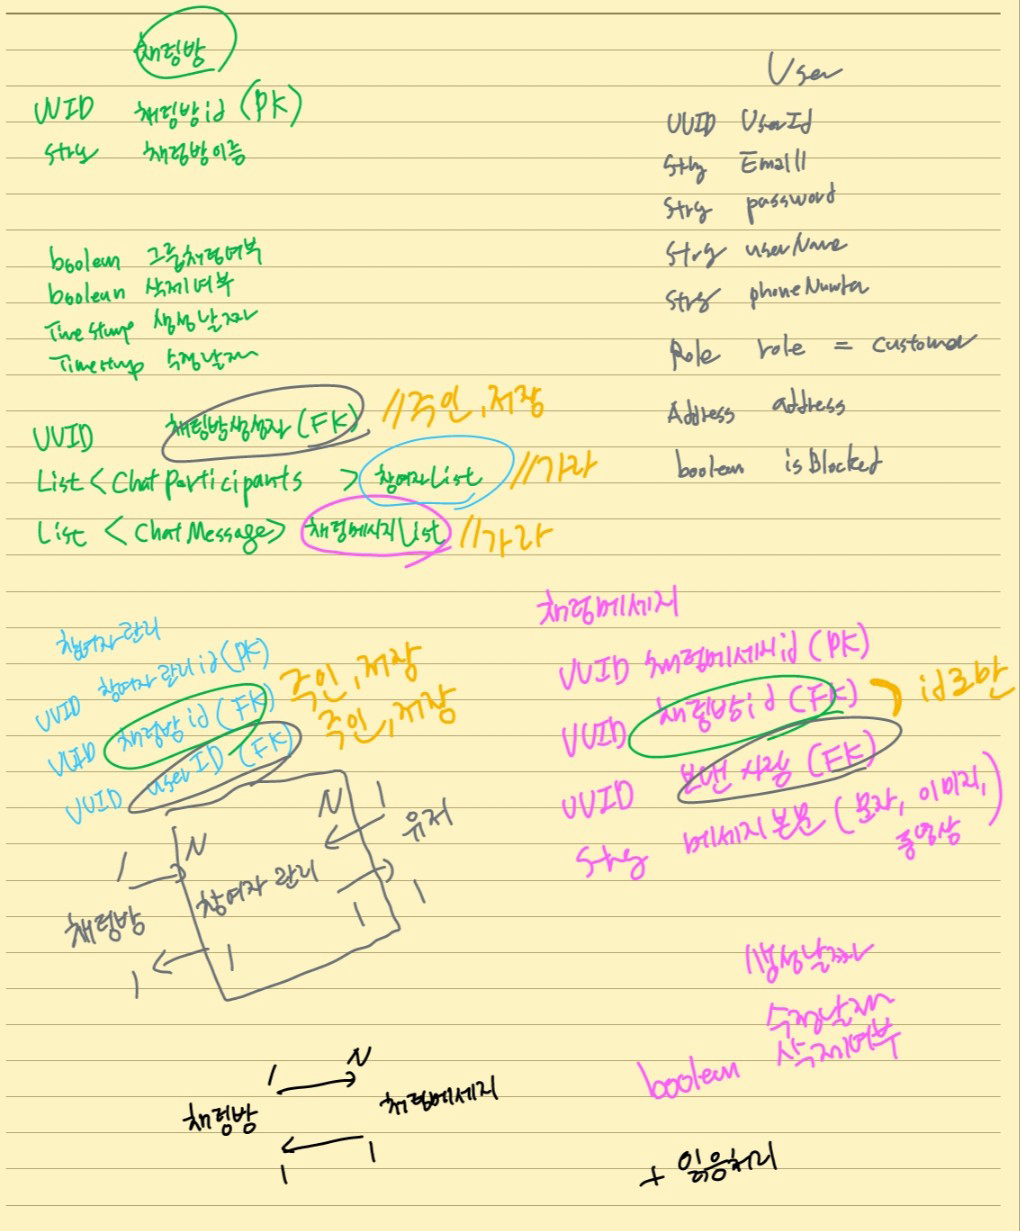 채팅방
UUID 채팅방id (PK)
String 채팅방이름
boolean 그룹채팅여부
boolean 삭제여부
TimeStamp 생성날짜
Timestamp 수정날짜
UUID 채팅방생성자 (FK) //주인,저장
List <ChatParticipants > 참여자List //가라
List <ChatMessage> 채팅메시지List //가라
User
UUID UserId
String Email
String password
String userName
String phoneNumber
Role role = Customer
Address address
boolean isBlocked
참여자 관리
UUID 참여자 관리id (PK)
UUID 채팅방id (FK) 주인,저장
UUID userID (FK) 주인,저장
채팅메세지
UUID 채팅메세지id (PK)
UUID 채팅방id (FK) id로만
UUID 보낸 사람 (FK)
String 메세지 본문 (문자, 이미지, 동영상)
생성날짜
수정날짜
boolean 삭제여부
1 N N 1
채팅방 참여자 관리 유저
1 1 1 1
1 N
채팅방 채팅메세지
1 1
+ 읽음처리